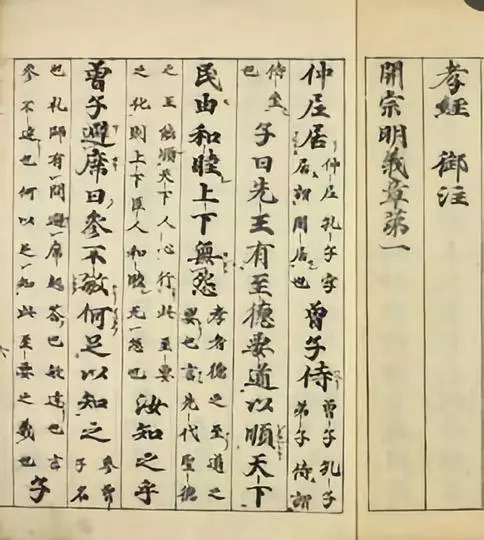 孝經 御注
開宗明義章第一
仲尼居 仲尼孔子字 居謂閒居也 曾子侍 曾子孔子 弟子侍謂
侍坐 也 子曰先王有至德要道以順天下
民由和睦上下無怨 孝者德之至道之 要也言先代聖德
之主能順天下人心行此至要 之化則上下臣人和睦无怨也 汝知之乎
曾子避席曰參不敏何足以知之 參曾 子名
也礼師有問避席起荅也敏達也言 參不達也何以足知此至要之義也 子